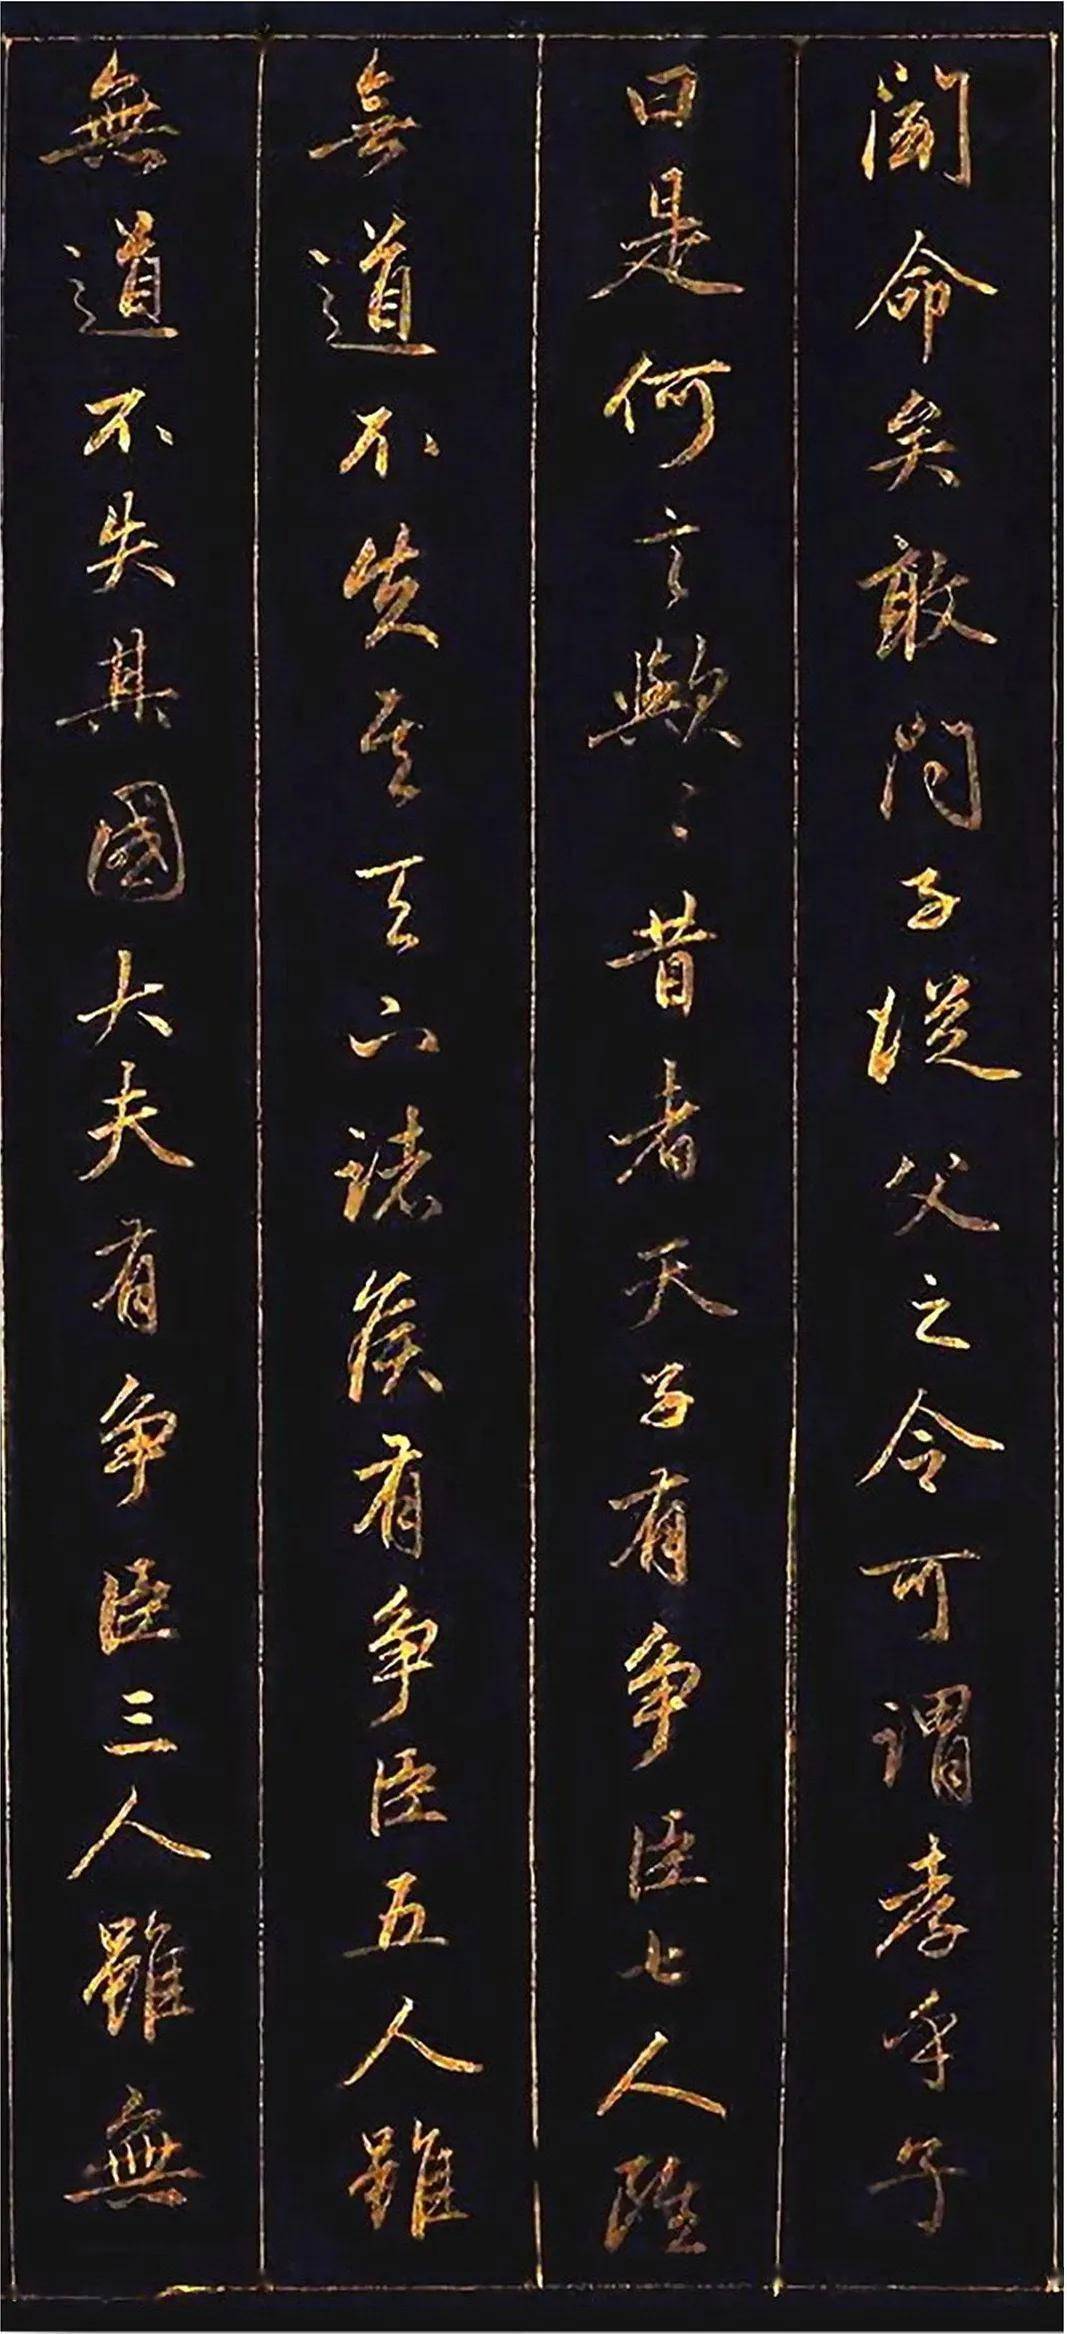 聞命矣敢問子從父之令可謂孝乎子
曰是何言歟〻昔者天子有争臣七人雖
無道不失其天下諸侯有争臣五人雖
無道不失其國大夫有争臣三人雖無